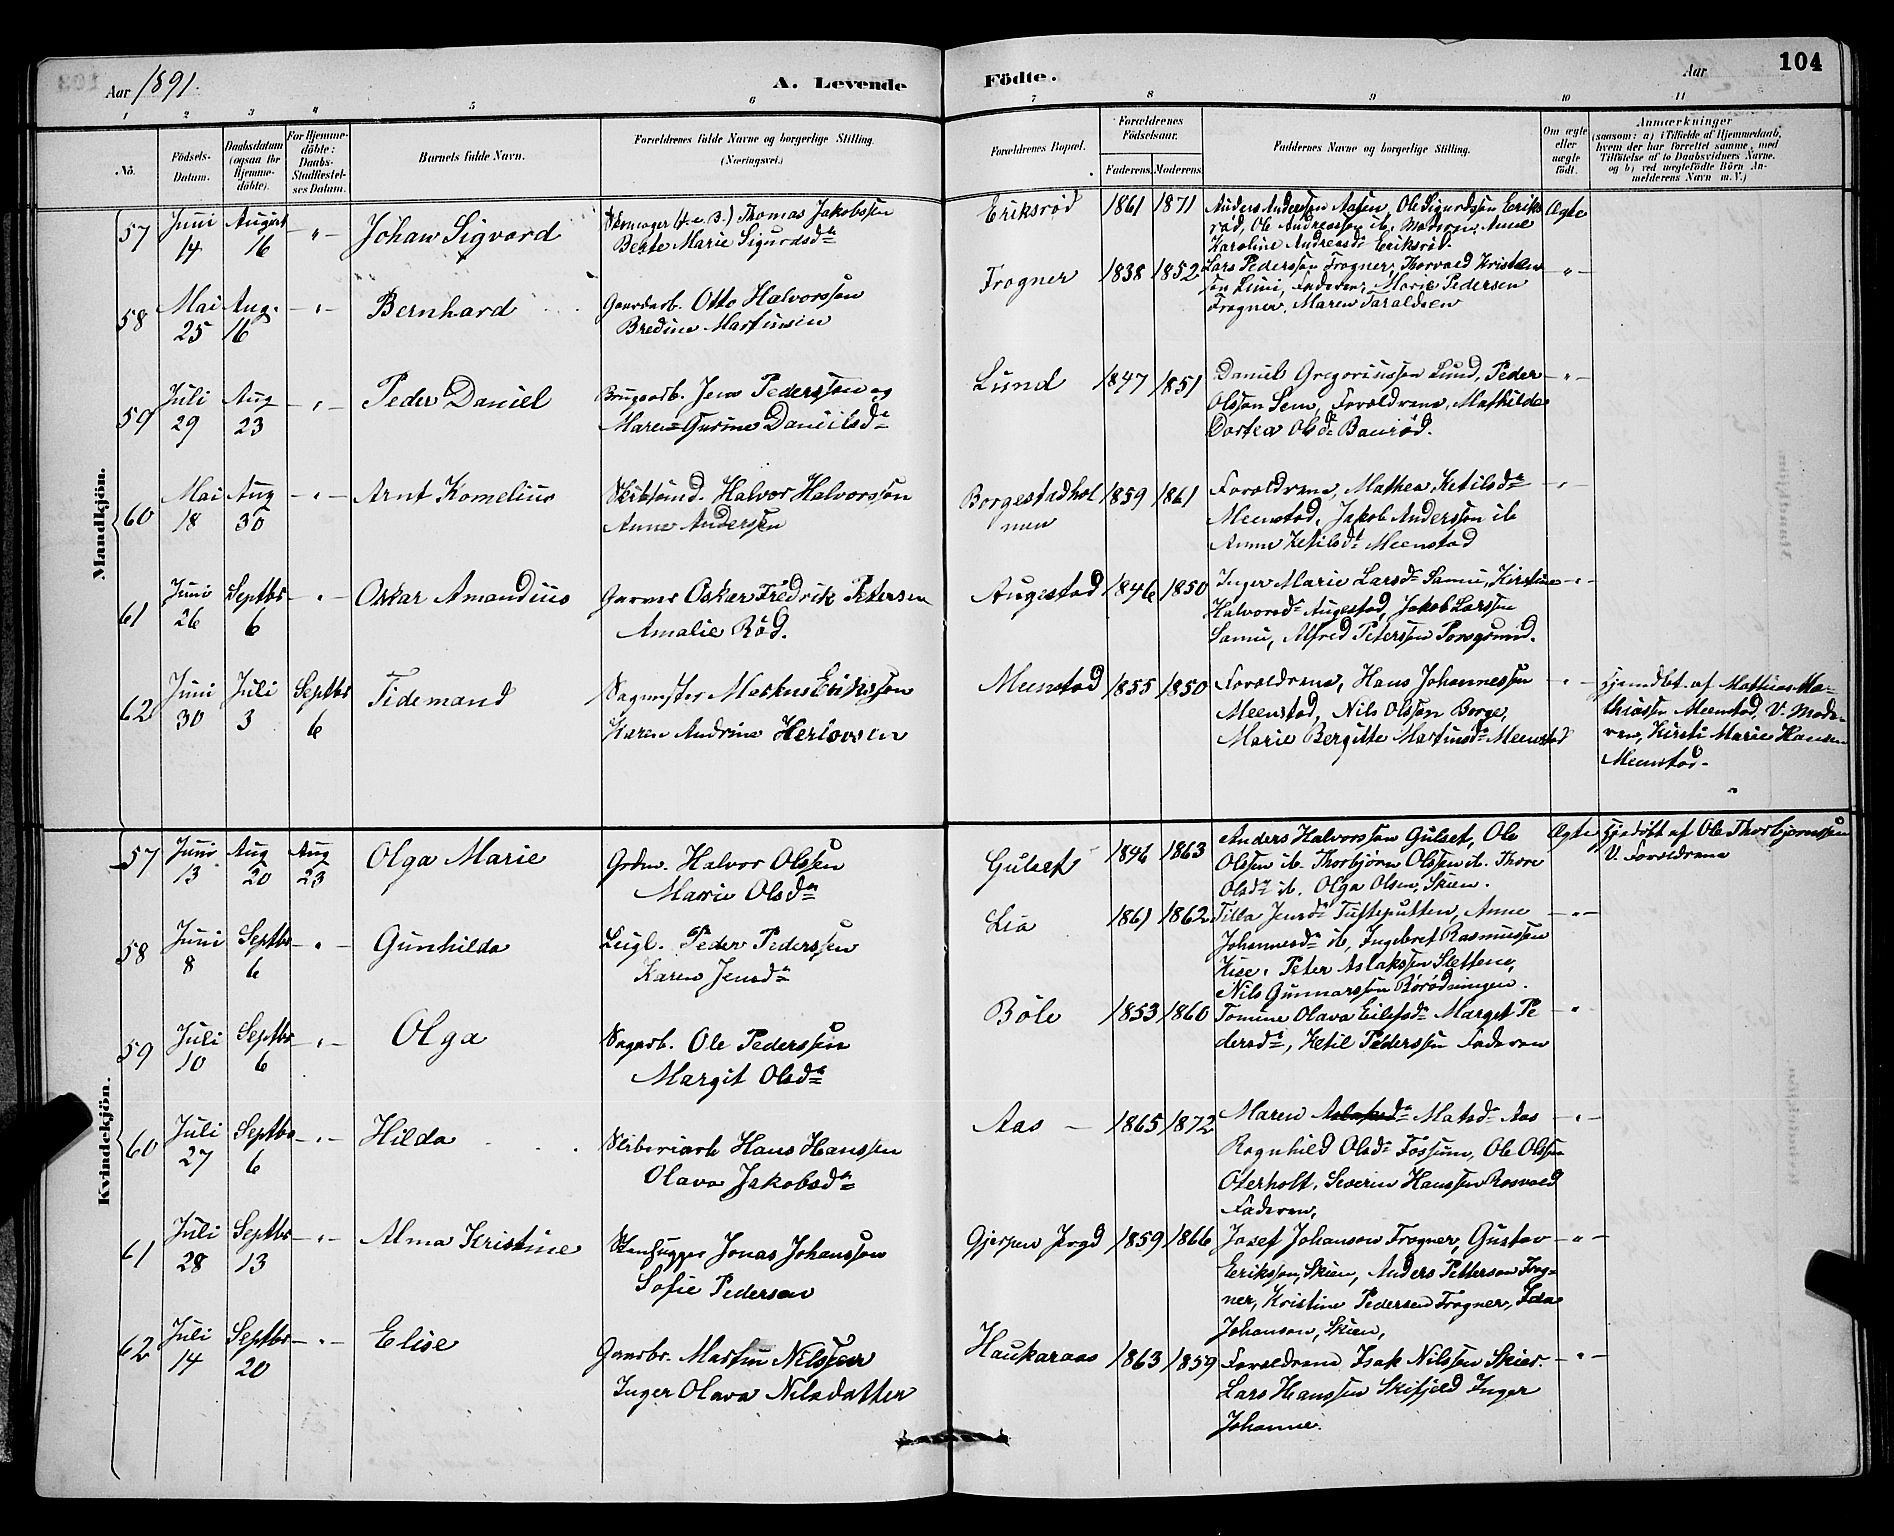 Aar 1891.
A. Levende
Födte.
Aar
104
1 2 3 4 5 6 7 8 9 10 11
No.
Födsels-Datum.
Daabsdatum (ogsaa for Hjemme-döbte).
For Hjemme-döbte: Daabs-Stadfæstel-ses Datum.
Barnets fulde Navn.
Forældrenes fulde Navne og borgerlige Stilling. (Næringsvei.)
Forældrenes Bopæl.
Forældrenes Födselsaar.
Faderens. Moderens.
Faddernes Navne og borgerlige Stilling.
Om ægte eller uægte födt.
Anmærkninger
(saasom: a) i Tilfælde af Hjemmedaab, hvem der har forrettet samme, med Tilföielse af to Daabsvidners Navne, og b) ved uægtefödte Börn An-melderens Navn m. V.)
Mandkjön.
57 Juni 14 August 16 - " - Johan Sigvard
Skomager Thomas Jakobssen
Berte Marie Sigurdsdr
Eriksrød 1861 1871
Anders Anderssen Aasen, Ole Sigurdssen Eriks
rød, Ole Andreassen ib. Moderen, Anne
Karoline Andreasdr Eriksrød.
Ægte
58 Mai 25 Aug. 16 - " - Bernhard
Gaardarb. Otto Halvorssen
Bredine Martinsen
Frogner 1838 1852
Lars Pederssen Frogner, Thorvald Kristen
sen Lund, Faderen, Marie Pedersen
Frogner, Maren Taraldsen
- " -
59 Juli 29 Aug 23 - " - Peder Daniel
Brugsarb. Jens Pederssen og
Maren Gurine Danielsdr
Lund 1847 1851
Daniel Gregoriussen Lund, Peder
Olssen Sem, Forældrene, Mathilde
Dortea Olsdr Baurød.
- " -
60 Mai 18 Aug 30 - " - Arnt Kornelius
Skibstømd. Halvor Halvorssen
Anne Anderssen
Borgestadhol
men
1859 1861
Forældrene, Mathea Ketilsdr
Meenstad, Jakob Anderssen ib
Anne Ketilsdr Meenstad
- " -
61 Juni 26 Septbr 6 - " - Oskar Amandius
Garver Oskar Fredrik Petersen
Amalie Rød.
Augestad 1846 1850
Inger Marie Larsdr Samu, Kirstine
Halvorsdr Augestad, Jakob Larssen
Samu, Alfred Peterssen Porsgrund.
- " -
62 Juni 30 Juli 3 Septbr 6 Tidemand
Sagmester Markus Erikssen
Karen Andrine Herlovsen
Meenstad 1855 1850
Forældrene, Hans Johannessen
Meenstad, Nils Olssen Borge,
Marie Bergitte Martinsdr Meenstad
- " -
Hjemdbt. af Mathias Ma-
thiassen Meenstad, V. Mode-
ren, Kirsti Marie Hansen
Meenstad.
Kvindekjön.
57 Juni 13 Aug 20 Aug 23 Olga Marie
Grdm. Halvor Olssen
Marie Olsdr
Gulset 1846 1863
Anders Halvorssen Gulset, Ole
Olssen ib. Thorbjørn Olssen ib. Thore
Olsdr ib. Olga Olsen, Skien.
Ægte
Hjedøbt af Ole Thorbjørnssen
V. Forældrene
58 Juni 8 Septbr 6 - " - Gunhilda
Leigl. Peder Pederssen
Karen Jensdr
Lia 1861 1862
Tilla Jensdr Tufteputten, Anne
Johannesdr ib, Ingebret Rasmussen
Kise, Peter Aslakssen Slettene,
Nils Gunnarssen Rørødningen.
- " -
59 Juli 10 Septbr 6 - " - Olga
Sagarb. Ole Pederssen
Margit Olsdr
Böle 1853 1860
Tomine Olava Eilefsdr Marget Pe
dersdr, Ketil Pederssen Faderen
- " -
60 Juli 27 Septbr 6 - " - Hilda
Sliberiarb Hans Hanssen
Olava Jakobsdr
Aas 1865 1872
Maren Matsdr Aas
Ragnhild Olsdr Fossum, Ole Olssen
Oterholt, Severin Hanssen Rosvald
Faderen,
- " -
61 Juli 28 Septbr 13 - " - Alma Kristine
Stenhugger Jonas Johanssen
Sofie Pedersen
Gjerpen Prgd 1859 1866
Josef Johanson Frogner, Gustav
Eerikssen, Skien, Anders Petterson Frog-
ner, Kristine Pedersen Frogner, Ida
Johanson, Skien,
- " -
62 Juli 14 Septbr 20 - " - Elise
Gaardbr. Martin Nilssen
Inger Olava Nilsdatter
Haukaraas 1863 1859
Forældrene Isak Nilssen Skien.
Lars Hanssen Skifjeld Inger
Johanne.
- " -